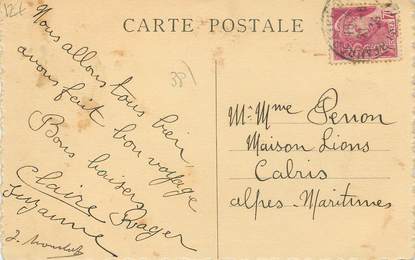 CARTE POSTALE
Nous allons tous bien
avons fait bon voyage
Bons baisers
Claire Roger
Suzanne
Mr Mme Penon
Maison Lions
Cabris
Alpes-Maritimes